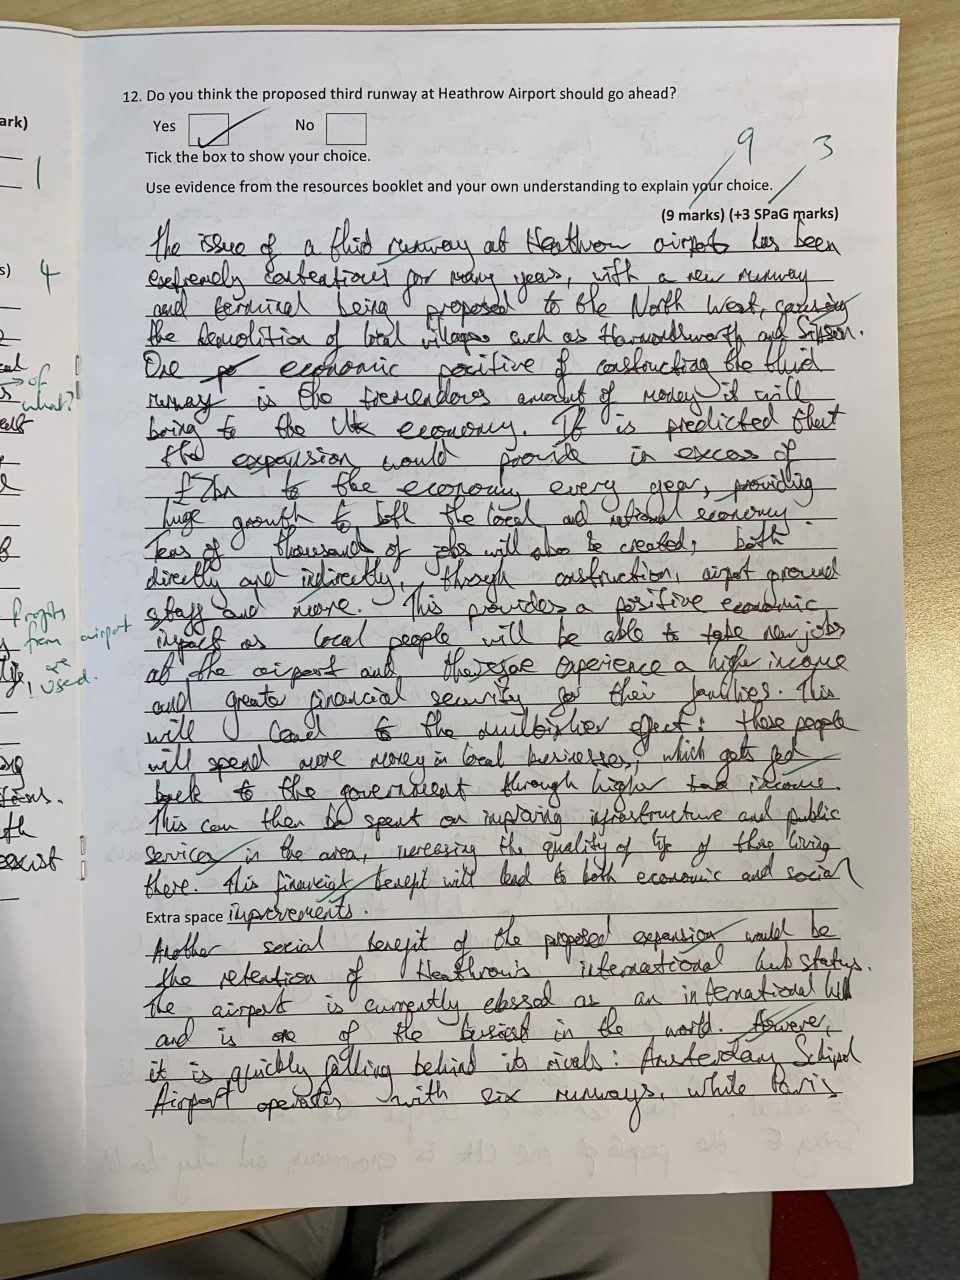 12. Do you think the proposed third runway at Heathrow Airport should go ahead?
Yes No
Tick the box to show your choice.
9 3
Use evidence from the resources booklet and your own understanding to explain your choice.
(9 marks) (+3 SPaG marks)
The issue of a third runway at Heathrow airport has been
extremely contentious for many years, with a new runway
and terminal being proposed to the North West, causing
the demolition of local villages such as Harmondsworth and Sipson.
One economic positive of constructing the third
runway is the tremendous amount of money it will
bring to the UK economy. It is predicted that
the expansion would provide in excess of
£2bn to the economy every year, providing
huge growth to both the local and national economy.
Tens of thousands of jobs will also be created, both
directly and indirectly, through construction, airport ground
staff and more. This provides a positive economic
impact as local people will be able to take new jobs
at the airport and therefore experience a higher income
and greater financial security for their families. This
will lead to the multiplier effect: these people
will spend more money in local businesses, which gets fed
back to the government through higher tax income.
This can then be spent on improving infrastructure and public
services in the area, increasing the quality of life of those living
there. This financial benefit will lead to both economic and social
Extra space improvements.
Another social benefit of the proposed expansion would be
the retention of Heathrow's international hub status.
The airport is currently classed as an international hub
and is one of the busiest in the world. However,
it is quickly falling behind its rivals: Amsterdam Schipol
Airport operates with six runways, while Paris
ark)
1
s)
4
of
what?
Profits
from airport
are
used.